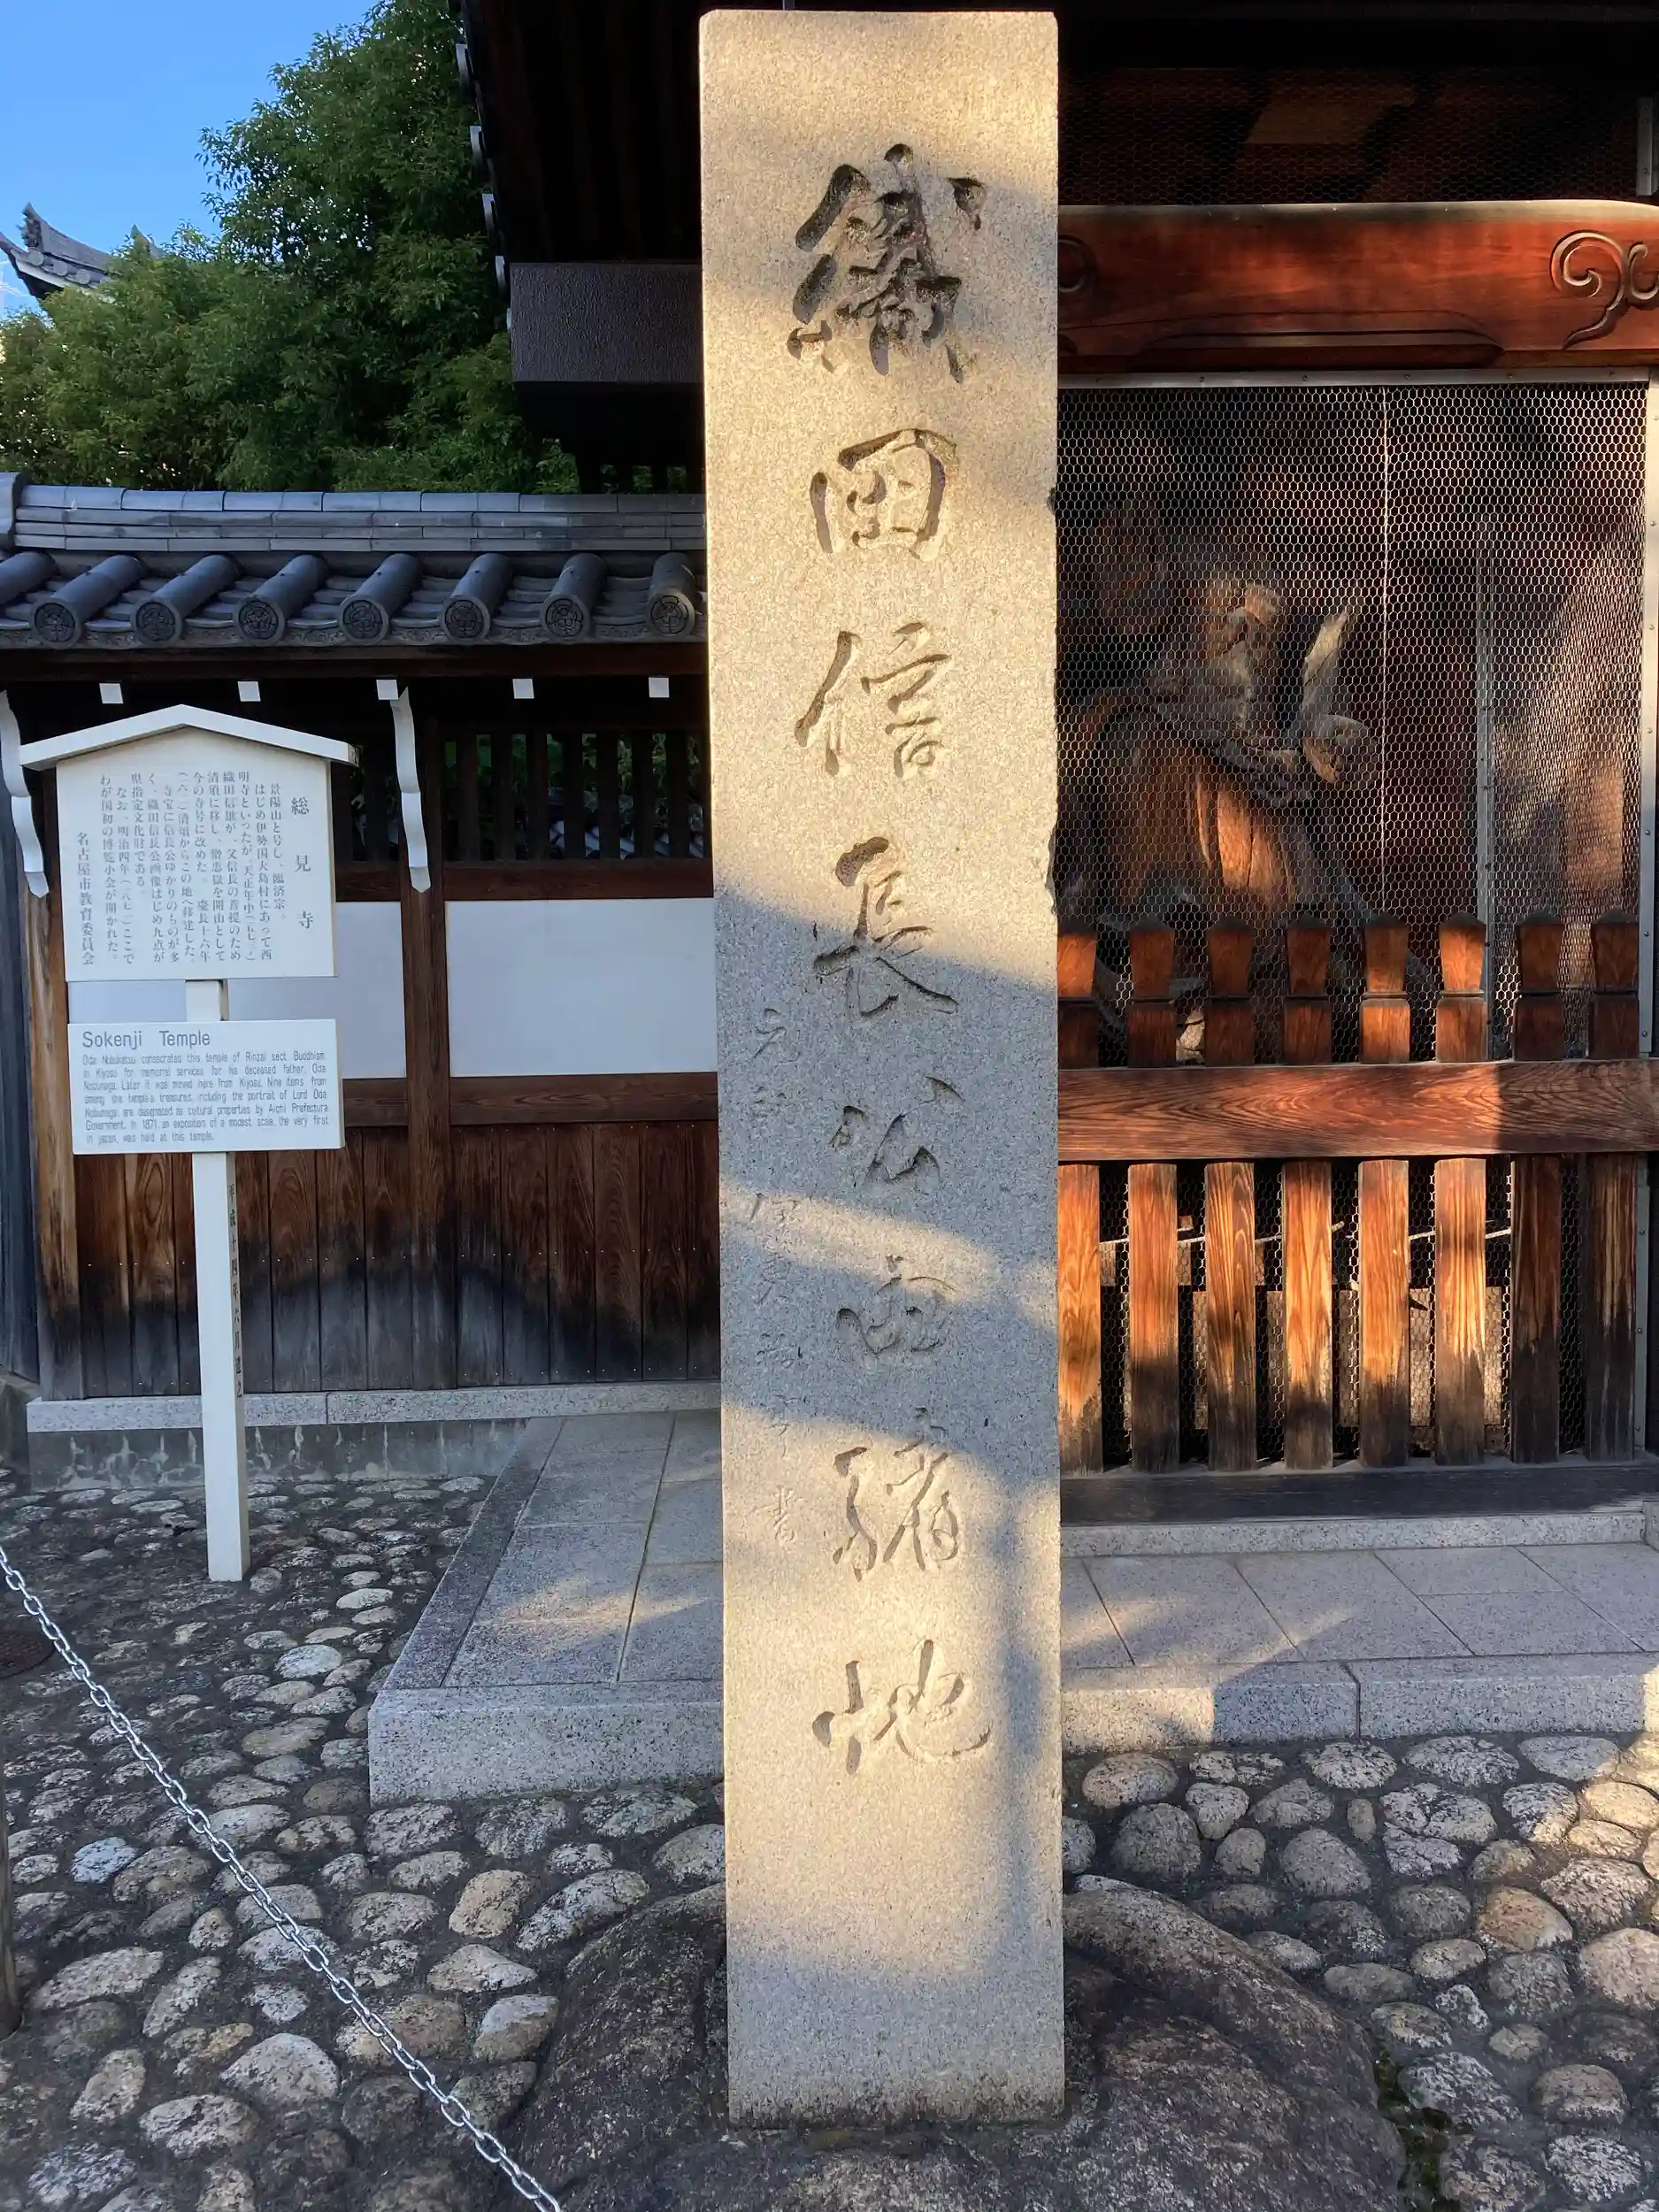 織田信長公
地
書
総見寺
景陽山と号し、臨済宗。
はじめ伊勢国大島村にあって西
明寺といったが、天正年中
織田信雄が、父信長の菩提のため
清須に移し、僧忠嶽を開山として
今の寺号に改めた。慶長十六年
(一六一一)清須からこの地へ移建した。
寺宝に信長公ゆかりのものが多
く、織田信長公画像はじめ九点が
県指定文化財である。
なお、明治四年(一八七一)ここで
わが国初の博覧小会が開かれた。
名古屋市教育委員会
Sokenji Temple
Oda Nobukatsu consecrated this temple of Rinzai sect Buddhism
in Kiyosu for memorial services for his deceased father, Oda
Nobunaga. Later it was moved here from Kiyosu. Nine items from
among the temple's treasures, including the portrait of Lord Oda
Nobunaga, are designated as cultural properties by Aichi Prefectura
Government. In 1871, an exposition of a modest scale, the very first
in japan, was held at this temple.